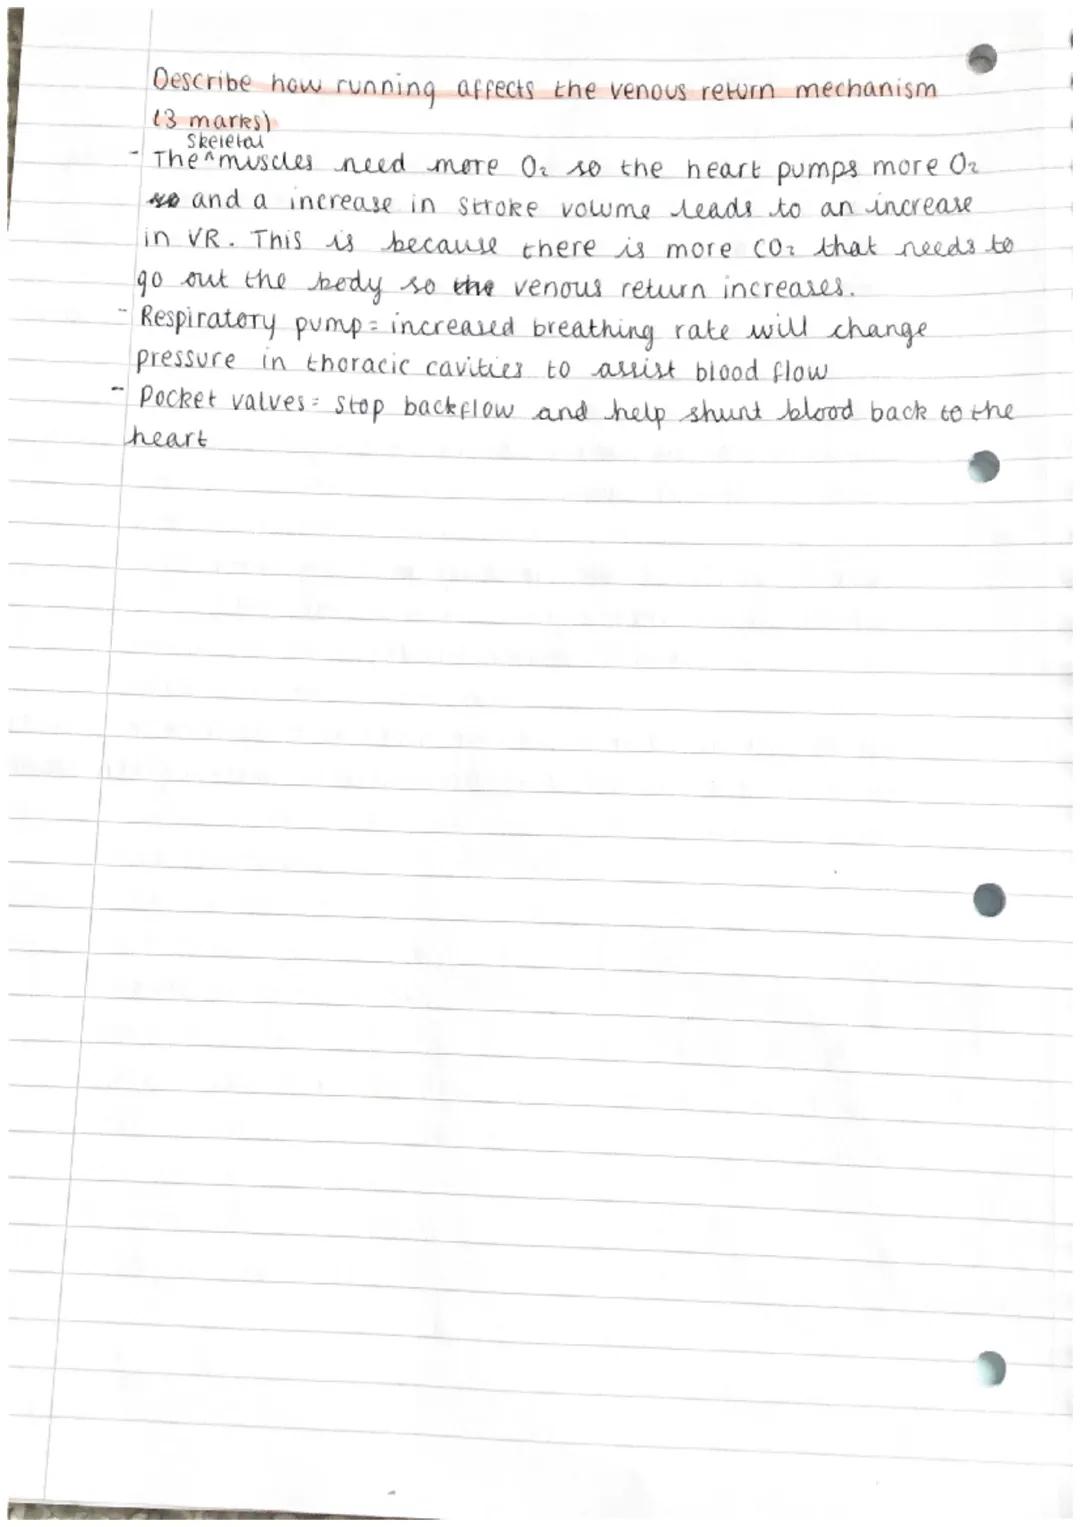 Describe how running affects the venous return mechanism
(3 marks)
Skeletal
- The ^ muscles need more O₂ so the heart pumps more O₂
so and a increase in stroke volume leads to an increase
in VR. This is because there is more CO₂ that needs to
go out the body so the venous return increases.
- Respiratory pump = increased breathing rate will change
pressure in thoracic cavities to assist blood flow
- Pocket valves = stop backflow and help shunt blood back to the
heart